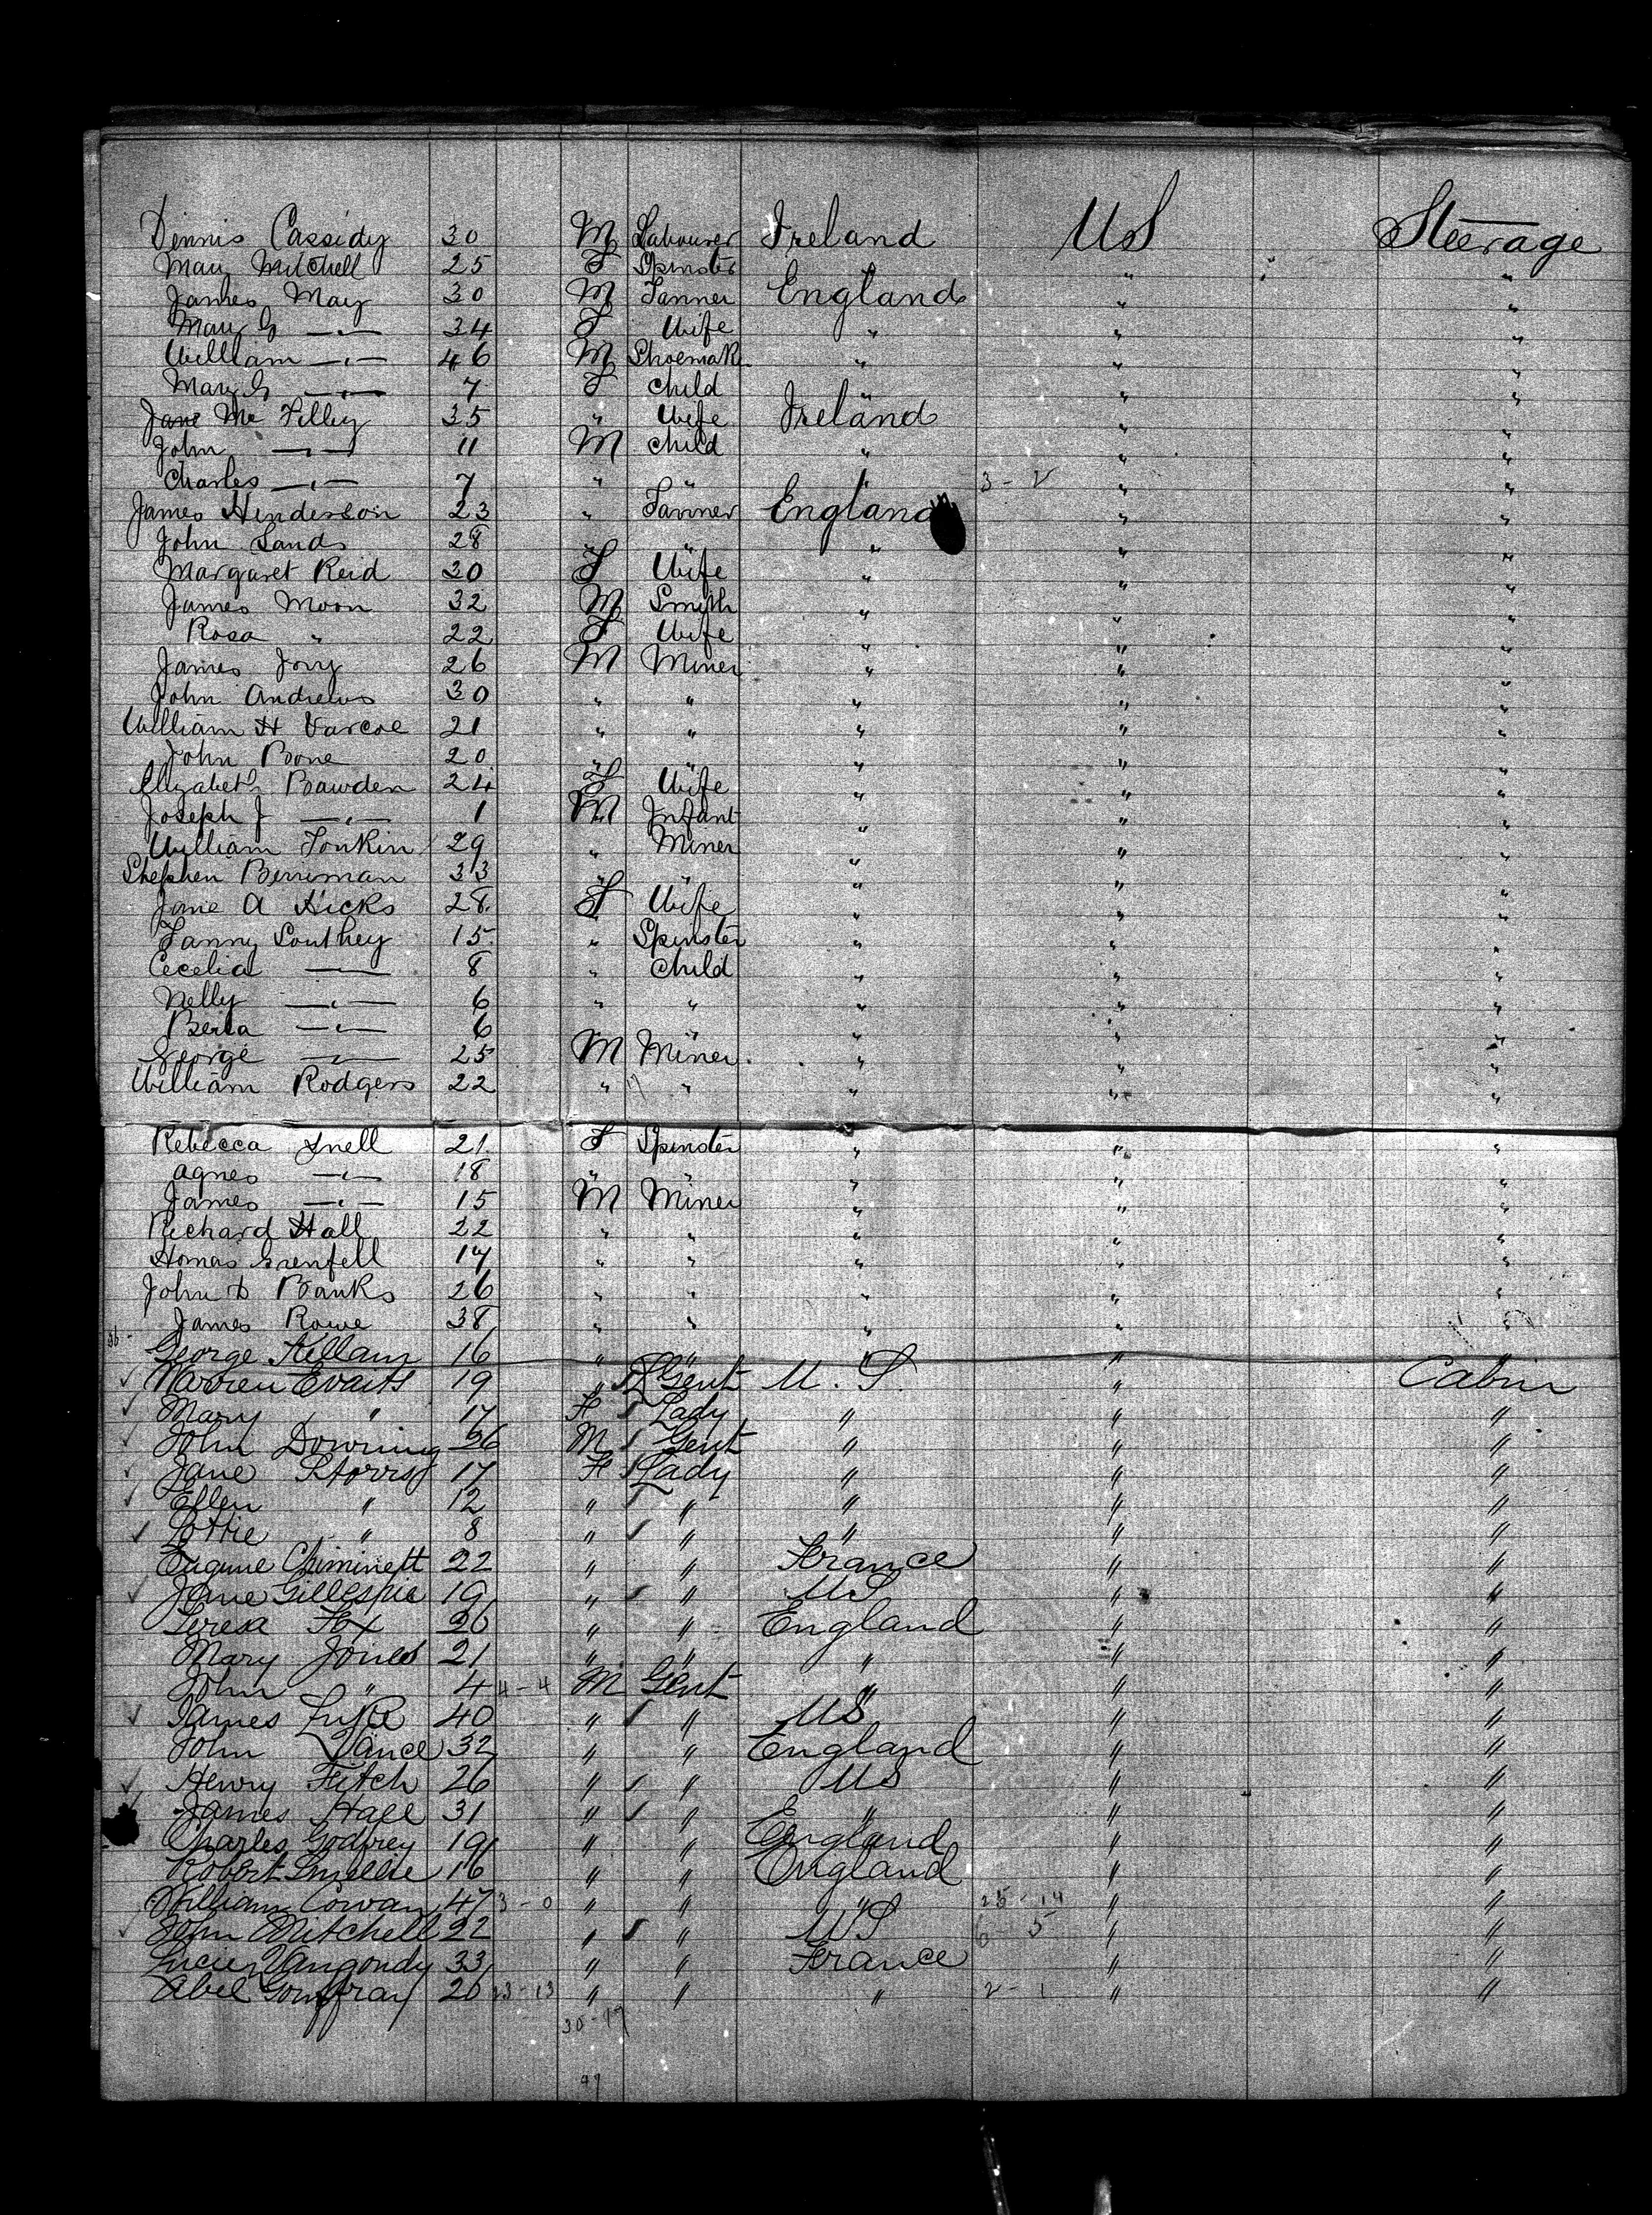 Dennis Cassidy 30 M Labourer Ireland US Steerage
Mary Mitchell 25 F Spinster " "
James May 30 M Tanner England " "
Mary G —"— 34 F Wife " " "
William —"— 46 M Shoemak. " " "
Mary G —"— 7 F child " " "
Jane Mc Filley 35 " Wife Ireland " "
John —"— 11 M child " " "
Charles —"— 7 " " " 3 - 2 " "
James Henderson 23 " Tanner England " "
John Sands 28 " " " " "
Margaret Reid 30 F Wife " " "
James Moon 32 M Smith " " "
Rosa " 22 F Wife " " "
James Jory 26 M Miner " " "
John Andrews 30 " " " " "
William H Varcoe 21 " " " " "
John Bone 20 " " " " "
Elizabeth Bawden 24 F Wife " " "
Joseph J —"— 1 M Infant " " "
William Tonkin 29 " Miner " " "
Stephen Berriman 33 " " " " "
Jane A Hicks 28 F Wife " " "
Fanny Southey 15 " Spinster " " "
Cecelia —"— 8 " child " " "
Nelly —"— 6 " " " " "
Berta —"— 6 " " " " "
George —"— 25 M Miner " " "
William Rodgers 22 " " " " "
Rebecca Snell 21 F Spinster " " "
Agnes —"— 18 " " " " "
James —"— 15 M Miner " " "
Richard Hall 22 " " " " "
Thomas Grenfell 17 " " " " "
John D Banks 26 " " " " "
James Rowe 38 " " " " "
George Kellam 16 " " " " "
Warren Evarts 19 " Gent U.S. " Cabin
Mary " 17 F Lady " " "
John Downing 26 M Gent " " "
Jane Storrs 17 F Lady " " "
Ellen " 12 " " " " "
Lottie " 8 " " " " "
Eugune Chiminett 22 " " France " "
Jane Gillespie 19 " " US " "
Teresa Fox 20 " " England " "
Mary Jones 21 " " " " "
John " 4 4-4 M Gent " " "
James Lusk 40 " " US " "
John Vance 32 " " England " "
Henry Fitch 26 " " US " "
James Hall 31 " " " " "
Charles Godfrey 19 " " England " "
Robert Smellie 16 " " England " "
William Cowan 47 3-0 " " " 25-14 " "
John Mitchell 22 " " US 6 5 " "
Lucien Vangondy 33 " " France " "
Abel Gouffray 20 23-13 " " " 2-1 " "
30-19